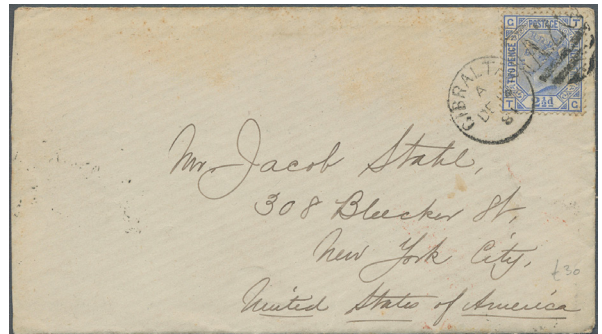 G POSTAGE T
TWO PENCE
T 2½d G
GIBRALTA
A
DE
8
Mr. Jacob Stahl,
308 Bleecker St,
New York City,
United States of America
£30